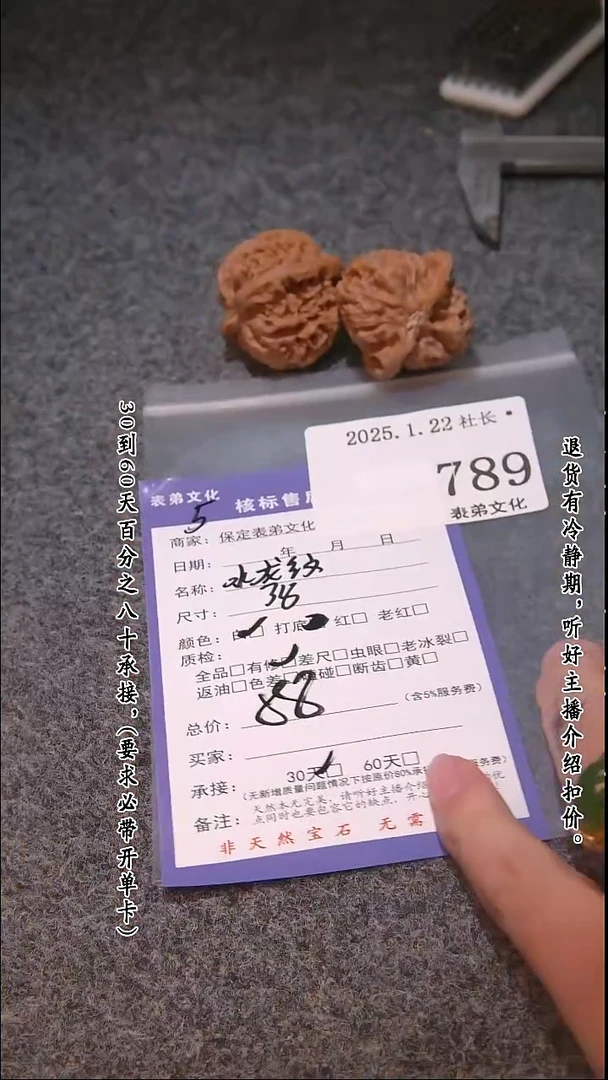 30到60天百分之八十承接，（要求必带开单卡）
退货有冷静期，听好主播介绍扣价。
2025.1.22 社长
789
表弟文化
表弟文化 核标售后
5
商家：保定表弟文化
日期： 年 月 日
名称：水龙纹
尺寸：38
颜色：白□ 打底 红□ 老红□
质检：
全品□有修□差尺□虫眼□老冰裂□
返油□色差 碰□断齿□黄□
总价：88 （含5%服务费）
买家：
承接：30天□ 60天□
（无新增质量问题情况下按原价80%承 服务费）
备注：天然本无完美，请听好主播介绍 优
点同时也要包容它的缺点，开
非天然宝石 无需